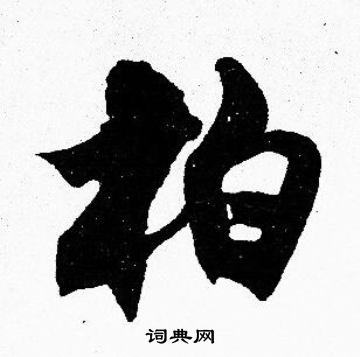 柏
词典网